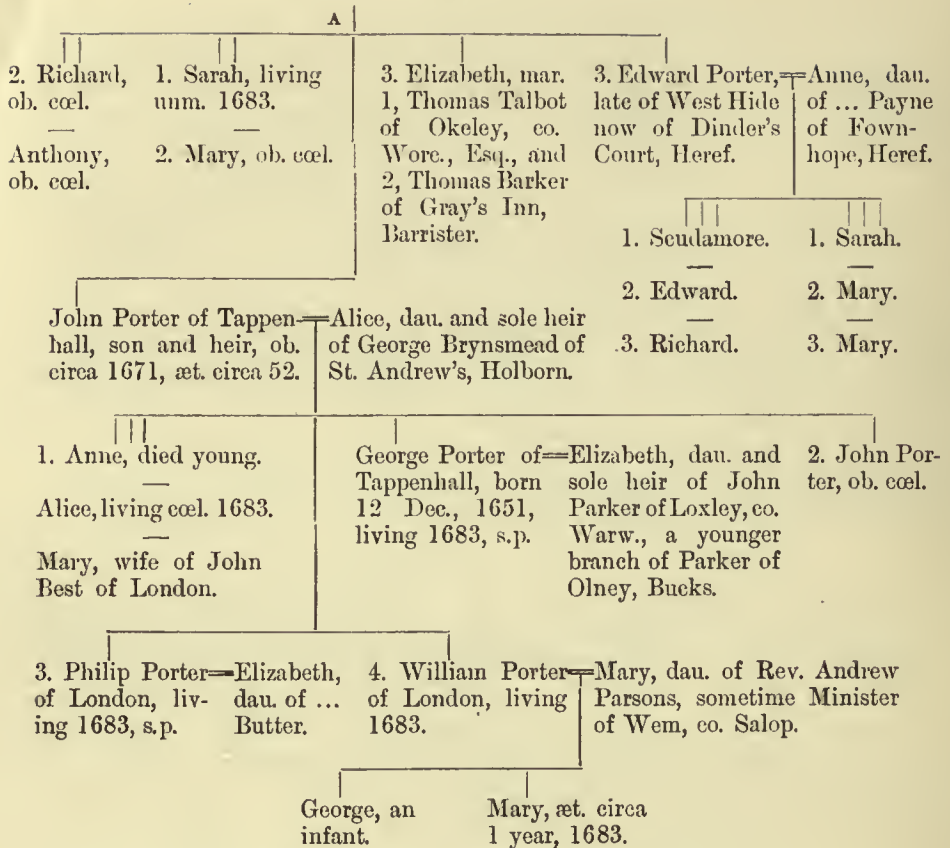 A
2. Richard,
ob. cœl.
—
Anthony,
ob. cœl.
1. Sarah, living
unm. 1683.
—
2. Mary, ob. cœl.
3. Elizabeth, mar.
1, Thomas Talbot
of Okeley, co.
Worc., Esq., and
2, Thomas Barker
of Gray's Inn,
Barrister.
3. Edward Porter,
late of West Hide
now of Dinder's
Court, Heref.
Anne, dau.
of ... Payne
of Fown-
hope, Heref.
1. Scudamore.
—
2. Edward.
—
3. Richard.
1. Sarah.
—
2. Mary.
—
3. Mary.
John Porter of Tappen-
hall, son and heir, ob.
circa 1671, æt. circa 52.
Alice, dau. and sole heir
of George Brynsmead of
St. Andrew's, Holborn.
1. Anne, died young.
—
Alice, living cœl. 1683.
—
Mary, wife of John
Best of London.
George Porter of
Tappenhall, born
12 Dec., 1651,
living 1683, s.p.
Elizabeth, dau. and
sole heir of John
Parker of Loxley, co.
Warw., a younger
branch of Parker of
Olney, Bucks.
2. John Por-
ter, ob. cœl.
3. Philip Porter
of London, liv-
ing 1683, s.p.
Elizabeth,
dau. of ...
Butter.
4. William Porter
of London, living
1683.
Mary, dau. of Rev. Andrew
Parsons, sometime Minister
of Wem, co. Salop.
George, an
infant.
Mary, æt. circa
1 year, 1683.